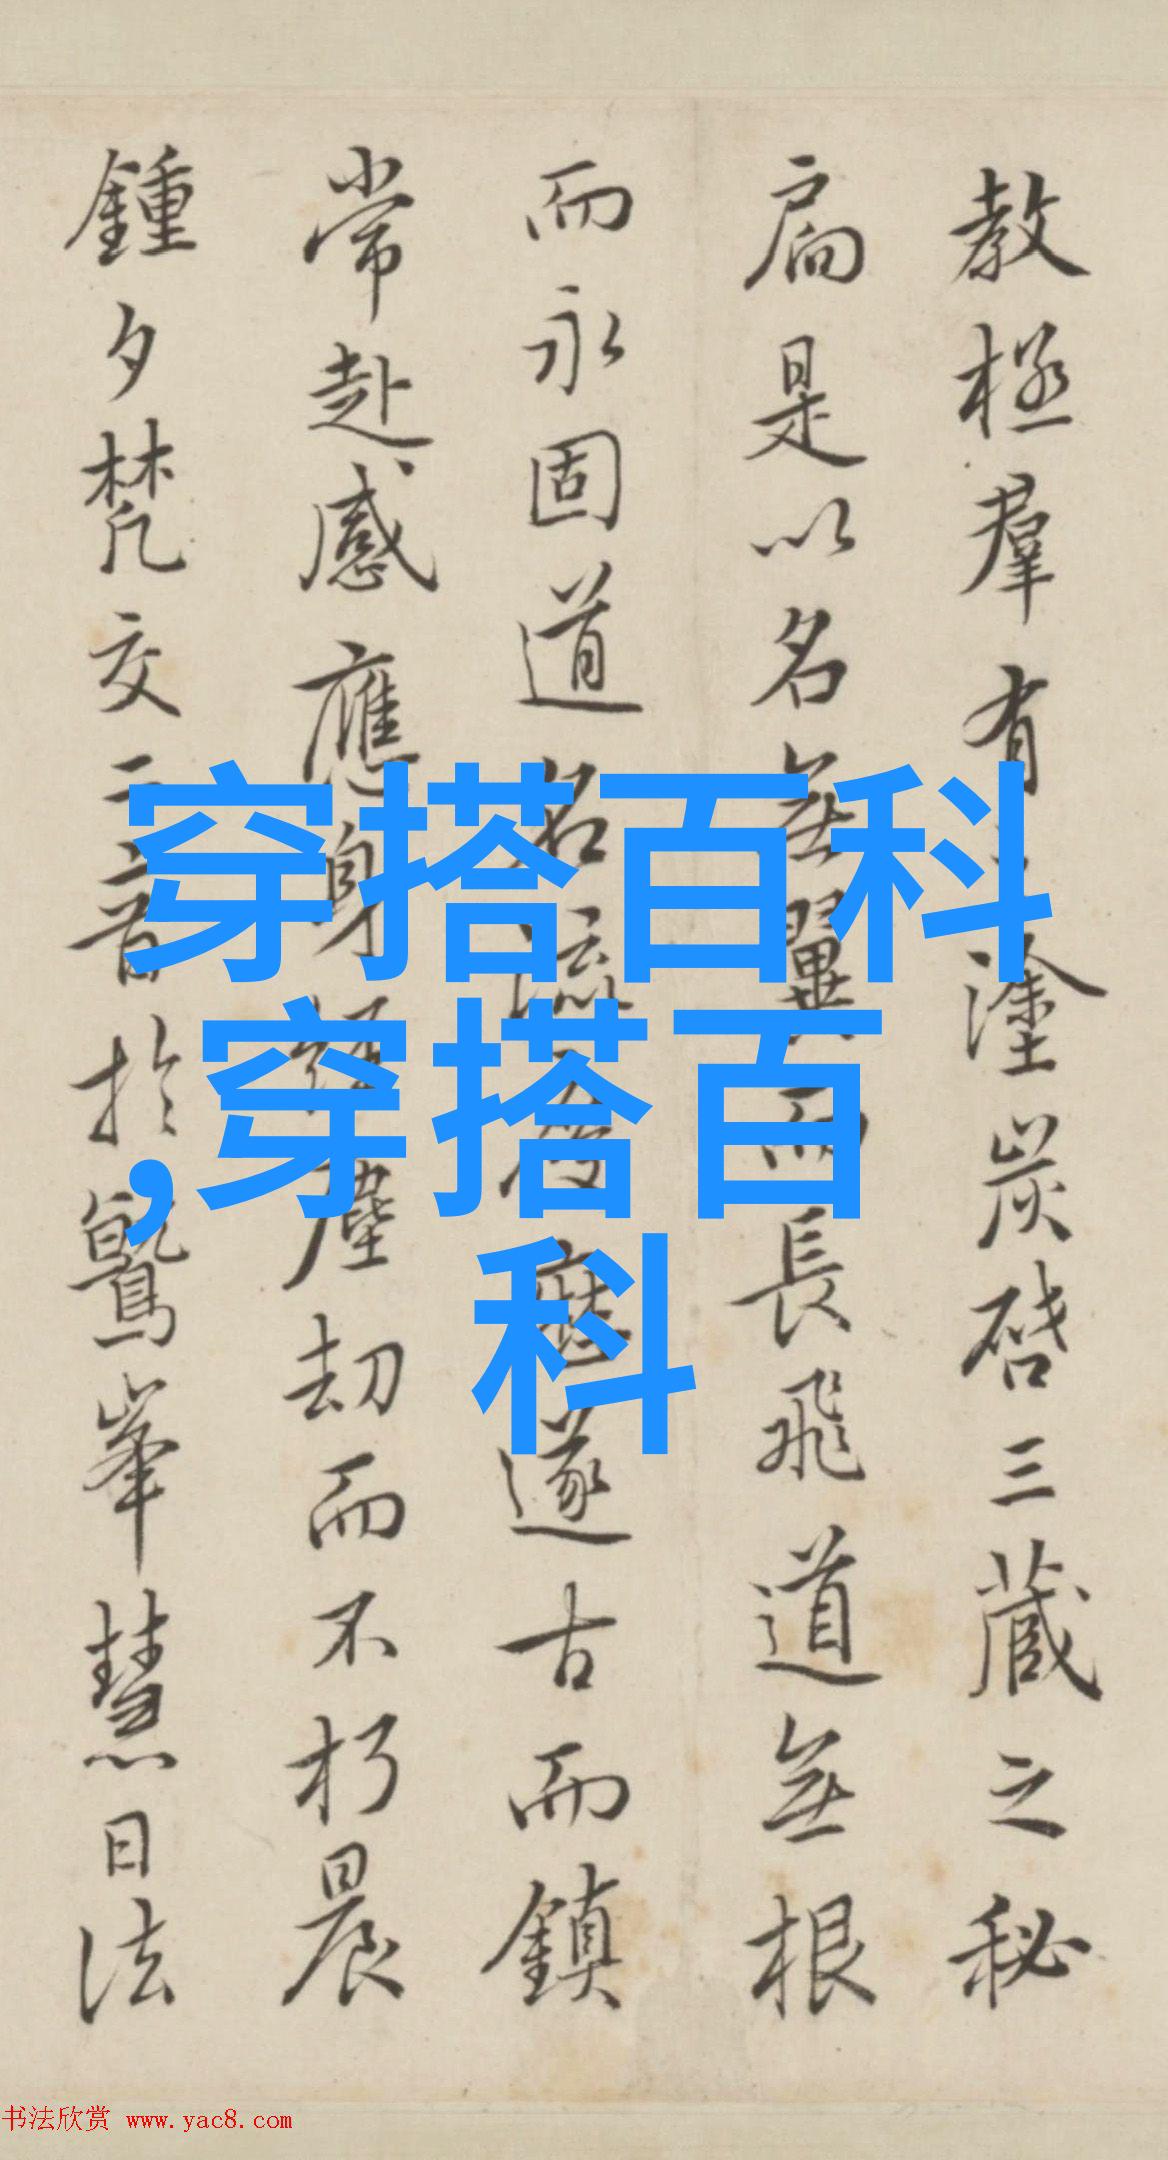 教極羣有之塗炭啓三藏之秘
扃是以名無翼而長飛道無根
而永固道名流慶歷遂古而鎮
常赴感應身經塵劫而不朽晨
鍾夕梵交二音於鷲峯慧日法
穿搭百科
,穿搭百
科
书法欣赏 www.yac8.com